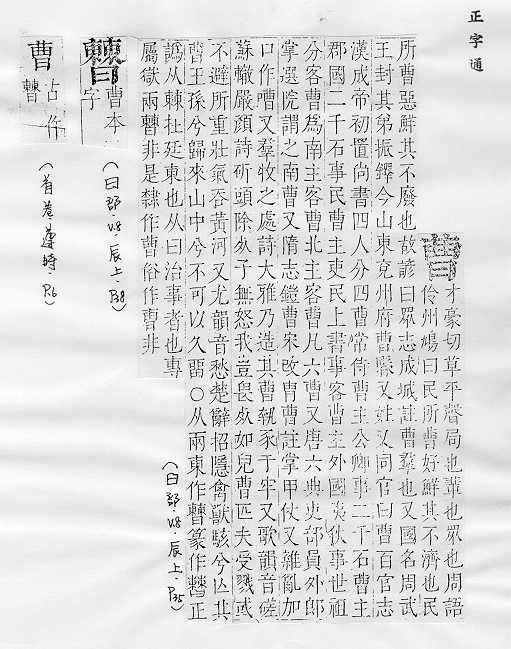 正字通
曹
才豪切草平聲局也輩也眾也周語
伶州鳩曰民所曹好鮮其不濟也民
所曹惡鮮其不廢也故諺曰眾志成城註曹羣也又國名周武
王封其弟振鐸今山東兗州府曹縣又姓又同官曰曹百官志
漢成帝初置尚書四人分四曹常侍曹主公卿事二千石曹主
郡國二千石事民曹主吏民上書事客曹主外國夷狄事世祖
分客曹爲南主客曹北主客曹凡六曹又唐六典吏部員外郎
掌選院謂之南曹又隋志鎧曹宋改冑曹註掌甲仗又雜亂加
口作嘈又羣牧之處詩大雅乃造其曹執豕于牢又歌韻音磋
蘇轍嚴顏詩斫頭除死子無怒我豈畏死如兒曹匹夫受戮或
不避所重壯氣吞黃河又尤韻音愁楚辭招隱禽獸駭兮亾其
曹王孫兮歸來山中兮不可以久畱○从兩東作𣍘篆作𣍘正
譌从棘扯廷東也从曰治事者也專
屬獄兩𣍘非是隸作曹俗作曺非
(曰部.V8.辰上.P35)
𣍘
曹本字
(曰部.V8.辰上.P38)
曹
古作𣍘
P.6)